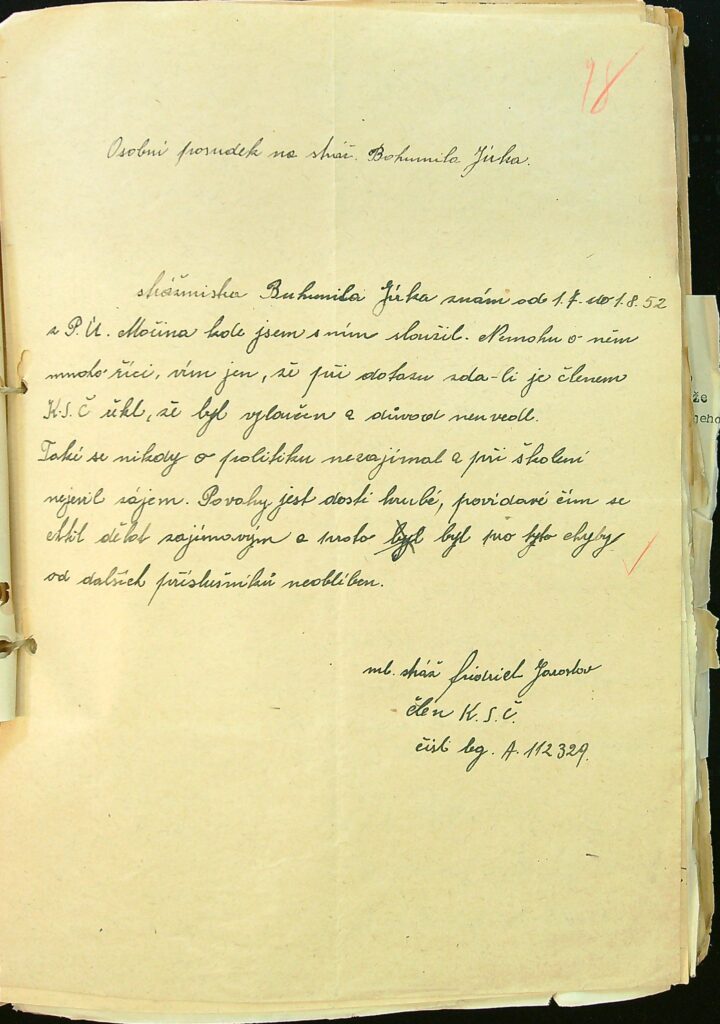 98
Osobní posudek na stráž. Bohumila Jírka.
strážmistra Bohumila Jírka znám od 1.7. do 1.8.52
z P.Ú. Močina kde jsem s ním sloužil. Nemohu o něm
mnoho říci, vím jen, že při dotazu zda-li je členem
K.S.Č řekl, že byl vyloučen a důvod neuvedl.
Také se nikdy o politiku nezajímal a při školení
nejevil zájem. Povahy jest dosti hrubé, povídavé čím se
chtěl dělat zajímavým a proto byl pro tyto chyby
od dalších příslušníků neoblíben.
ml. stráž Fridrich Jaroslav
člen K.S.Č.
čísl. leg. A. 112329.
že
jeho